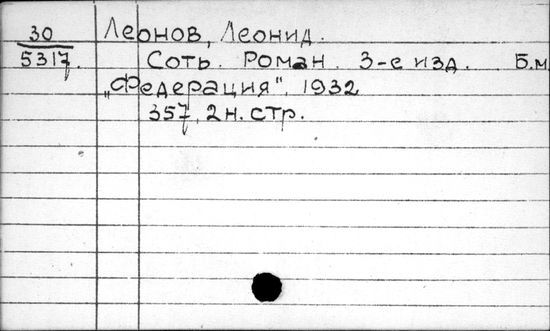 30 Леонов, Леонид.
5317. Соть. Роман. 3-е изд. Б.м
„Федерация", 1932
357, 2 н. стр.